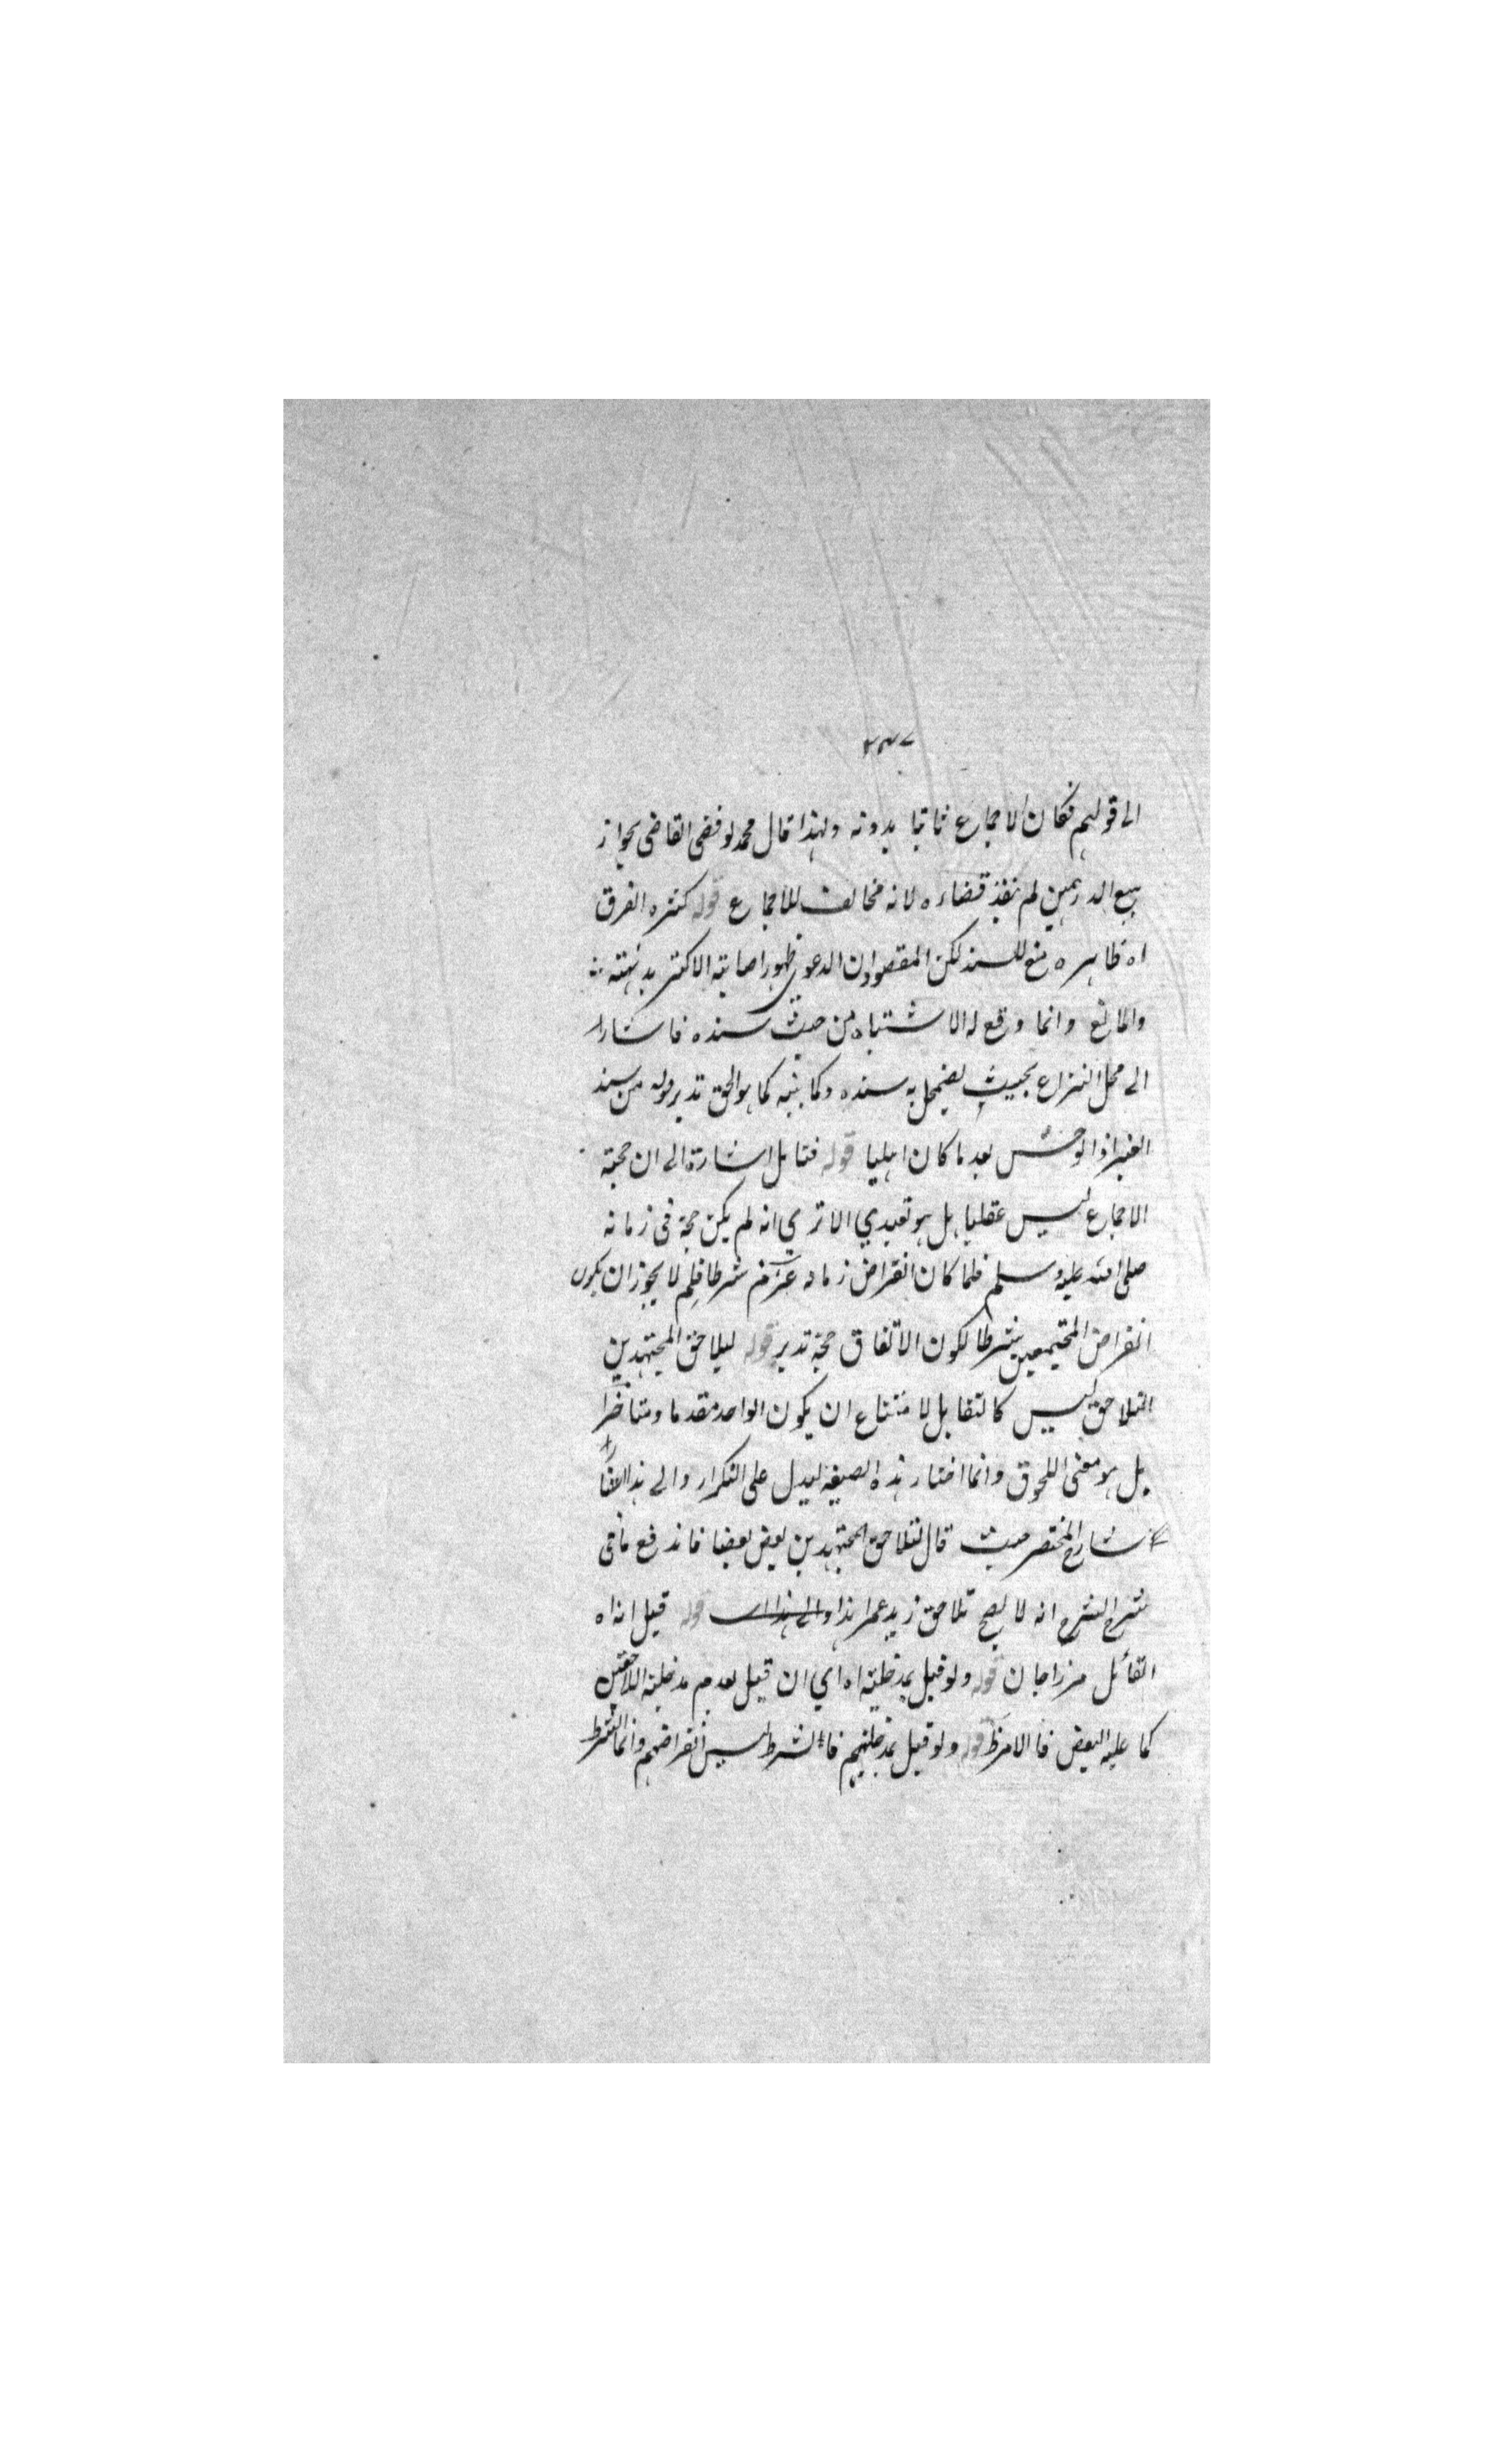 ۲۳۷
الى قولهم فكان الاجماع ثابتا بدونه ولهذا قال محمد لو قضى القاضى بجواز
بيع الدرهمين لم ينفذ قضاءه لانه مخالف للاجماع قوله كثرة الفرق
اه ظاهره منع للسند لكن المقصود ان الدعوى ظهور اصابته الاكثر بديهته
والمانع وانما وقع له الاشتباه من حيث سنده فاشار
الى محل النزاع بحيث يضمحل به سنده وكما بينه كما هو الحق تدبر قوله من سند
الغير اذ الوحش بعد ما كان اهليا قوله فتامل اشارة الى ان حجية
الاجماع ليس عقليا بل هو تعبدي الا ترى انه لم يكن حجة فى زمانه
صلى الله عليه وسلم فلما كان انقراض زمانه شرطا فلم لا يجوز ان يكون
انقراض المجتمعين شرطا لكون الاتفاق حجة تدبر قوله لتلاحق المجتهدين
التلاحق ليس كالتقابل لامتناع ان يكون الواحد متقدما ومتاخرا
بل هو معنى اللحوق وانما اختار هذه الصيغة ليدل على التكرار والى هذا اشار
شارح المختصر حيث قال لتلاحق المجتهدين بعض بعضا فاندفع ما فى
شرح الشرح انه لا يصح تلاحق زيد عمرا هذا والى هذا قوله قيل انه اه
القائل مرزاجان قوله ولو قيل بمدخليته اه اي ان قيل بعدم مدخلية اللاحقين
كما عليه البعض فالامر ظ قوله ولو قيل بمدخليتهم فالشرط ليس انقراضهم وانما الشرط